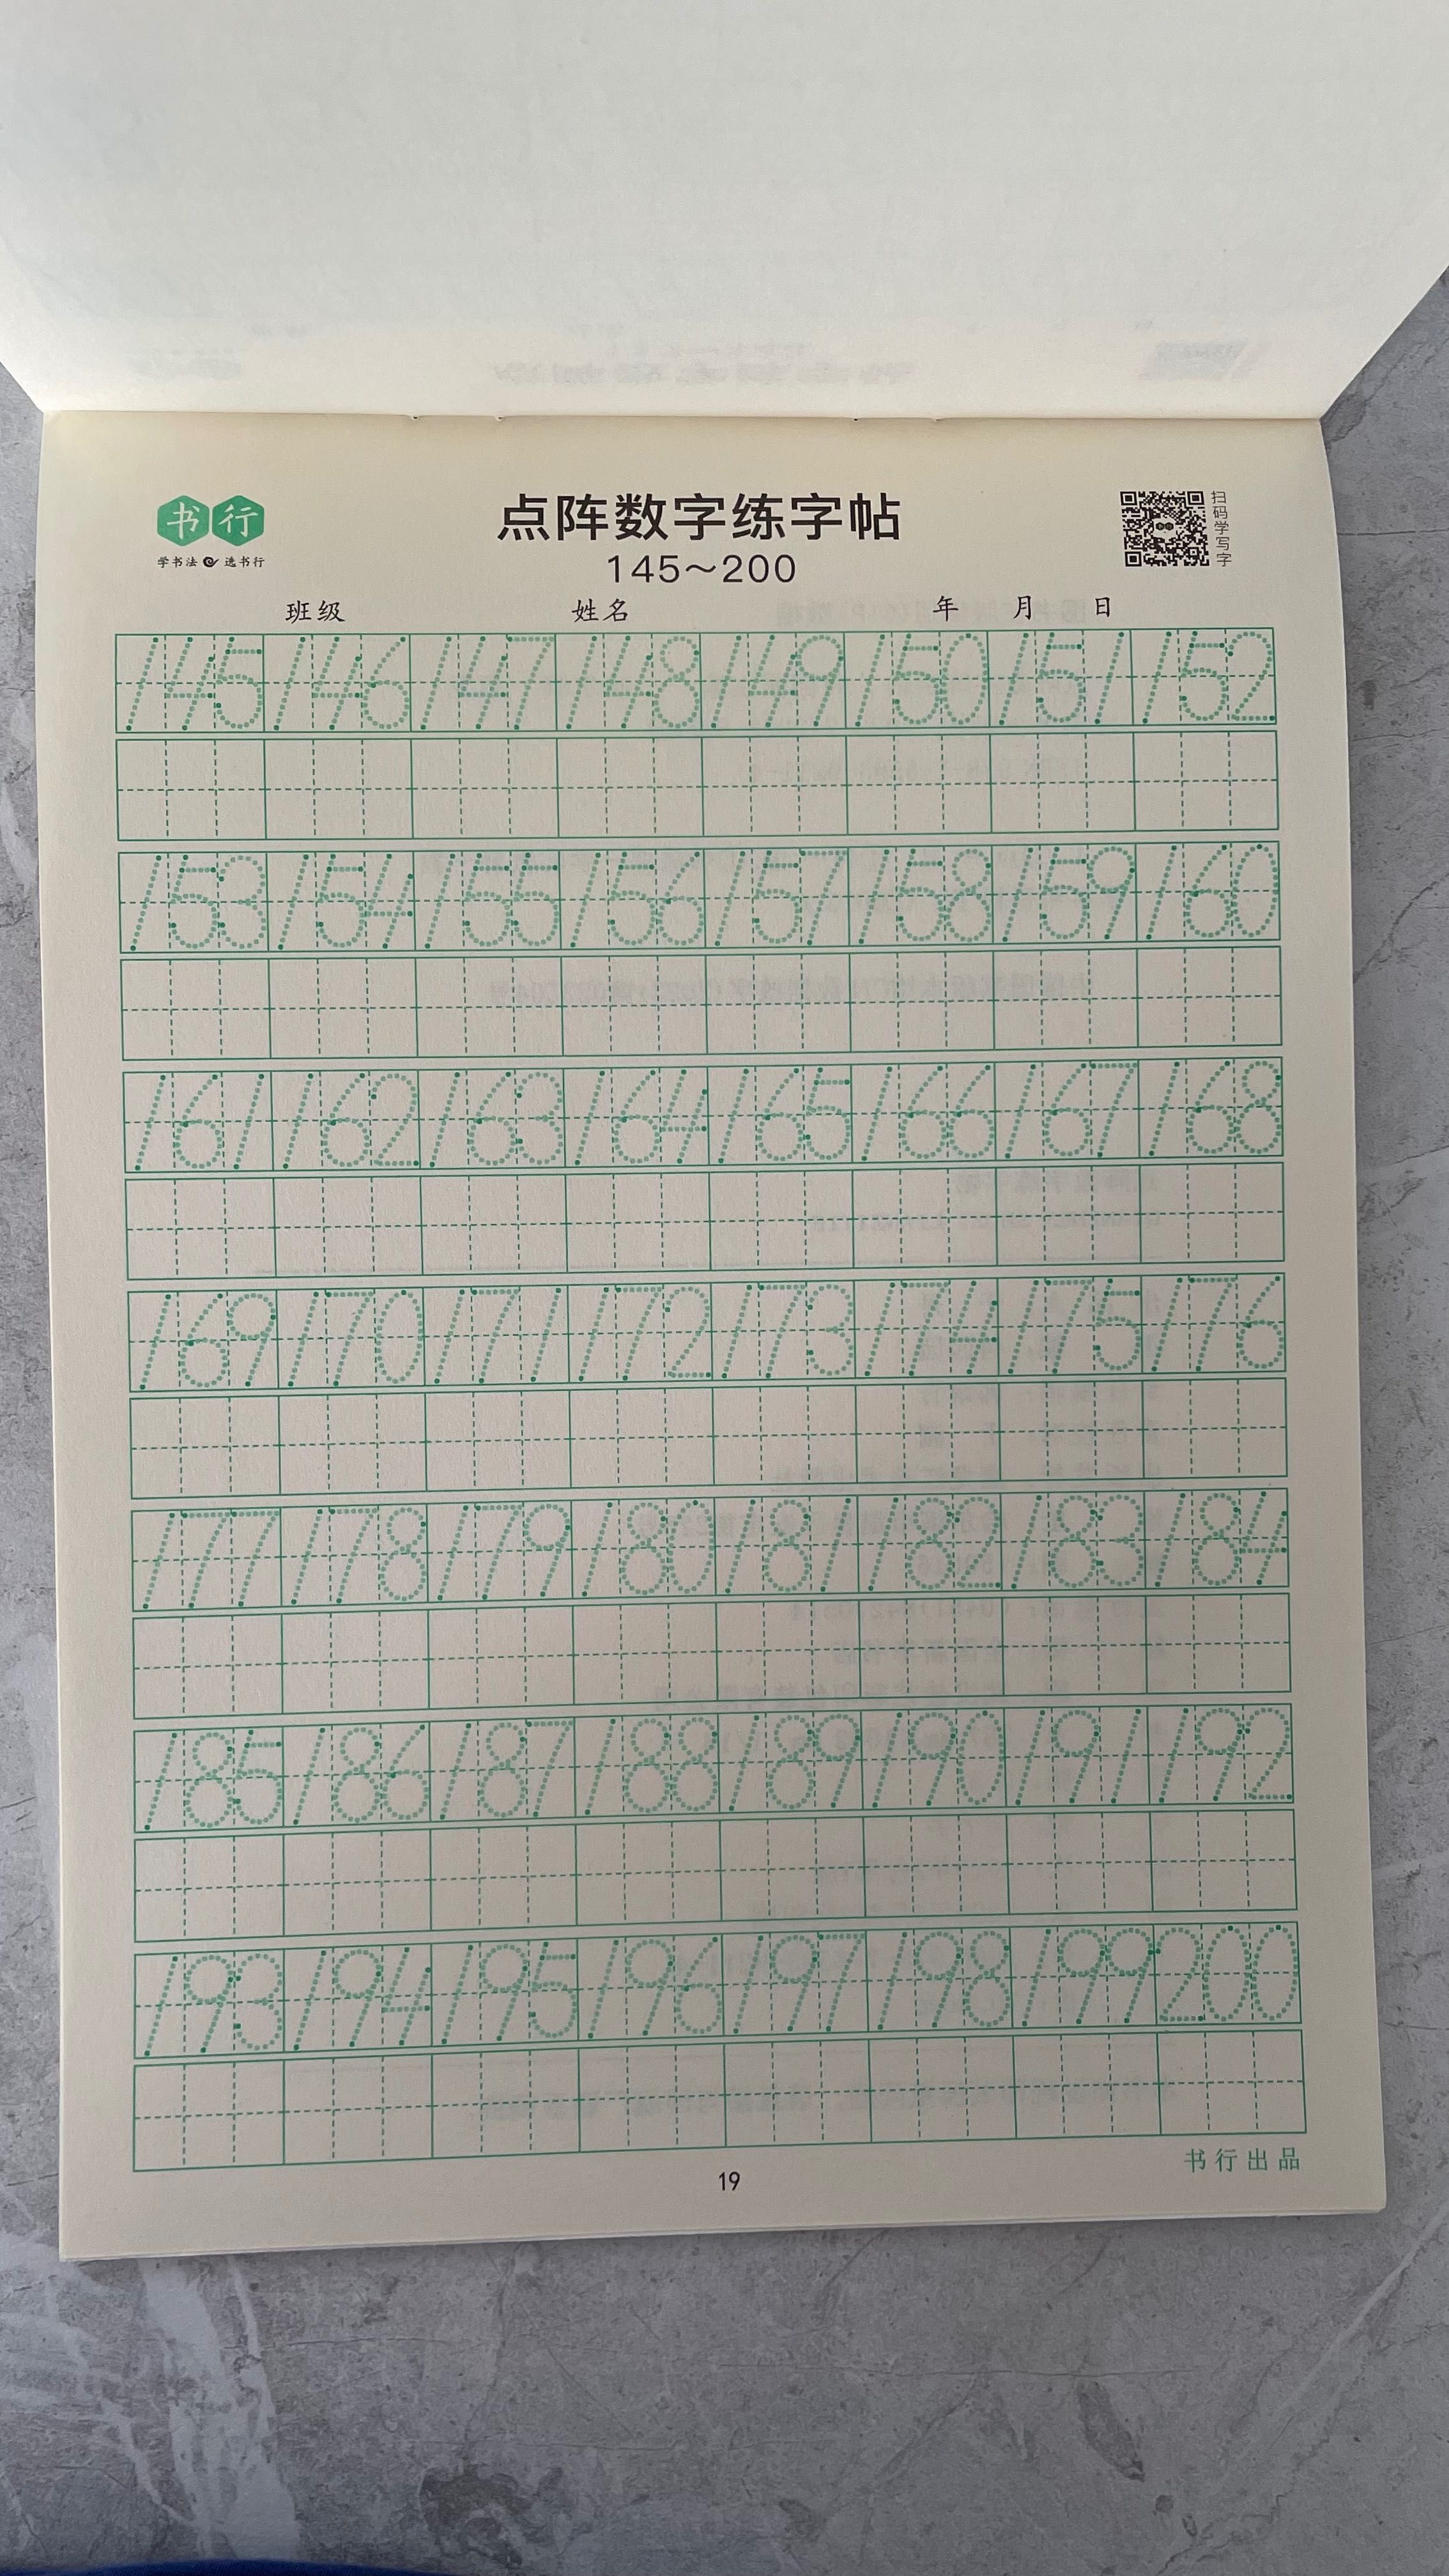 书行
学书法 选书行
点阵数字练字帖
145～200
扫码学写字
班级 姓名 年 月 日
145 146 147 148 149 150 151 152
153 154 155 156 157 158 159 160
161 162 163 164 165 166 167 168
169 170 171 172 173 174 175 176
177 178 179 180 181 182 183 184
185 186 187 188 189 190 191 192
193 194 195 196 197 198 199 200
19
书行出品